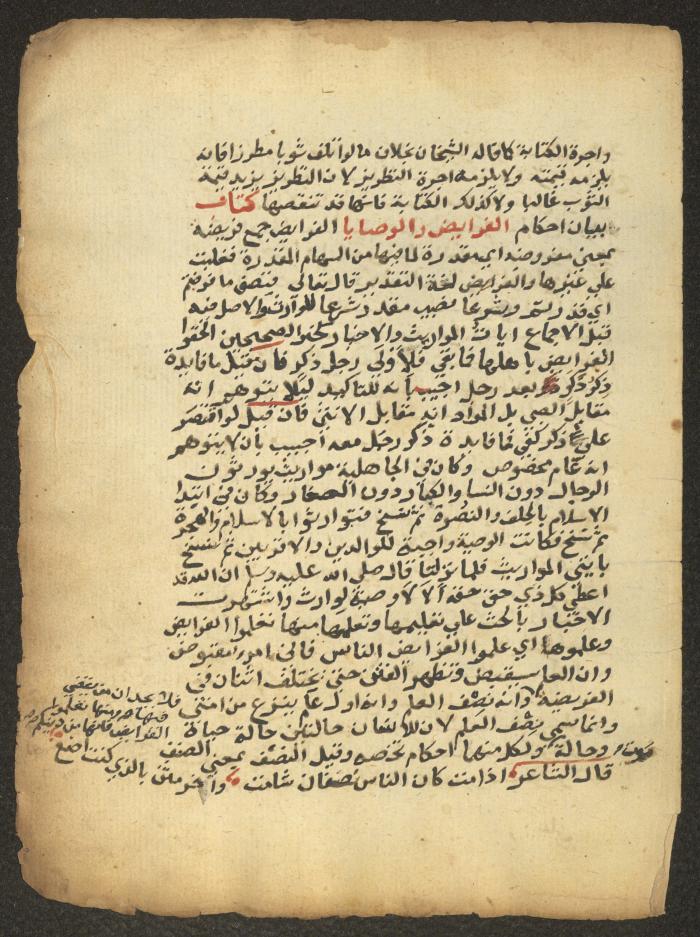 واجرة الكتابة كما قاله الشيخان بخلاف ما لو اتلف ثوبا مطرزا فانه
يلزمه قيمته ولا يلزمه اجرة التطريز لان التطريز يزيد قيمة
الثوب غالبا ولا كذلك الكتابة فانها قد تنقصها كتاب
بيان احكام الفرايض والوصايا الفرايض جمع فريضة
بمعني مفروضة اي مقدرة لما فيها من السهام المقدرة فغلبت
علي غيرها والفرايض لغة التقدير قال تعالي فنصف ما فرضتم
اي قدرتم وشرعا نصيب مقدر شرعا للوارث والاصل فيه
قبل الاجماع ايات المواريث والاخبار كخبر الصحيحين الحقوا
الفرايض باهلها فما بقي فلاولي رجل ذكر فان قيل ما فايدة
ذكر ذكر بعد رجل اجيب بانه للتاكيد ليلا يتوهم انه
مقابل الصبي بل المراد انه مقابل الانثي فان قيل لو اقتصر
علي ذكر كفي فما فايدة ذكر رجل معه اجيب بان لا يتوهم
انه عام مخصوص وكان في الجاهلية مواريث يورثون
الرجال دون النسا والكبار دون الصغار وكان في ابتدا
الاسلام بالحلف والنصرة ثم نسخ فتوارثوا بالاسلام والهجرة
ثم نسخ فكانت الوصية واجبة للوالدين والاقربين ثم نسخ
بايتي المواريث فلما نزلتا قال صلي الله عليه وسلم ان الله قد
اعطي كل ذي حق حقه الا لا وصية لوارث واشتهرت
الاخبار بالحث علي تعليمها وتعلمها منها تعلموا الفرايض
وعلموها اي علموا الفرايض الناس فاني امرء مقبوض
وان العلم سيقبض وتظهر الفتن حتي يختلف اثنان في
الفريضة فلا يجدان من يقضي
فيها ومنها تعلموا
الفرايض فانها من دينكم
وانه نصف العلم وانه اول علم ينزع من امتي
وانما سمي نصف العلم لان للانسان حالتين حالة حياة
وحالة موت ولكل منهما احكام تخصه وقيل النصف بمعني الصنف
قال الشاعر اذا مت كان الناس نصفان شامت واخر مثن بالذي كنت اصنع